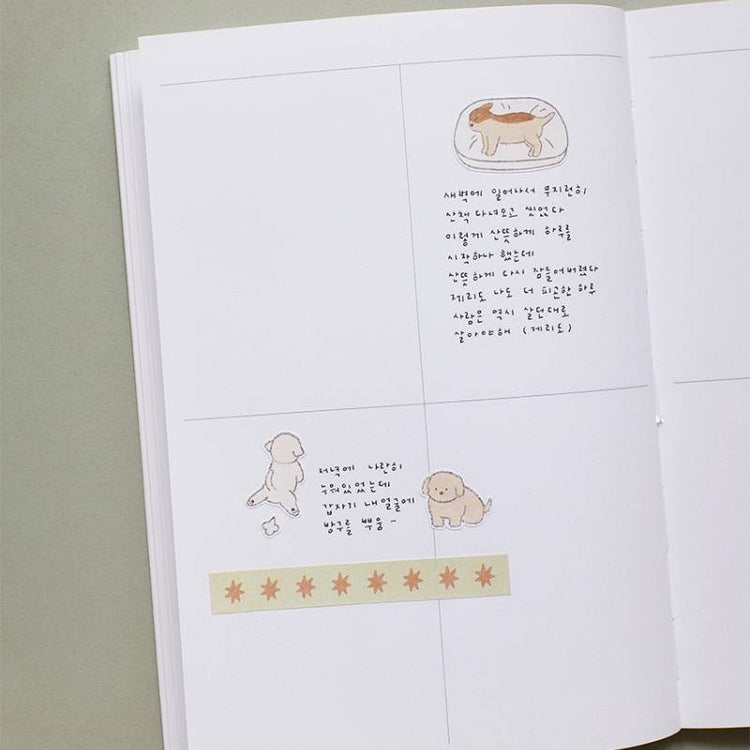 새벽에 일어나서 부지런히
산책 다녀오고 씻었다
이렇게 산뜻하게 하루를
시작하나 했는데
산뜻하게 다시 잠들어버렸다
제리도 나도 더 피곤한 하루
사람은 역시 살던대로
살아야해 (제리도)
저녁에 나란히
누워있었는데
갑자기 내 얼굴에
방구를 뿌웅~